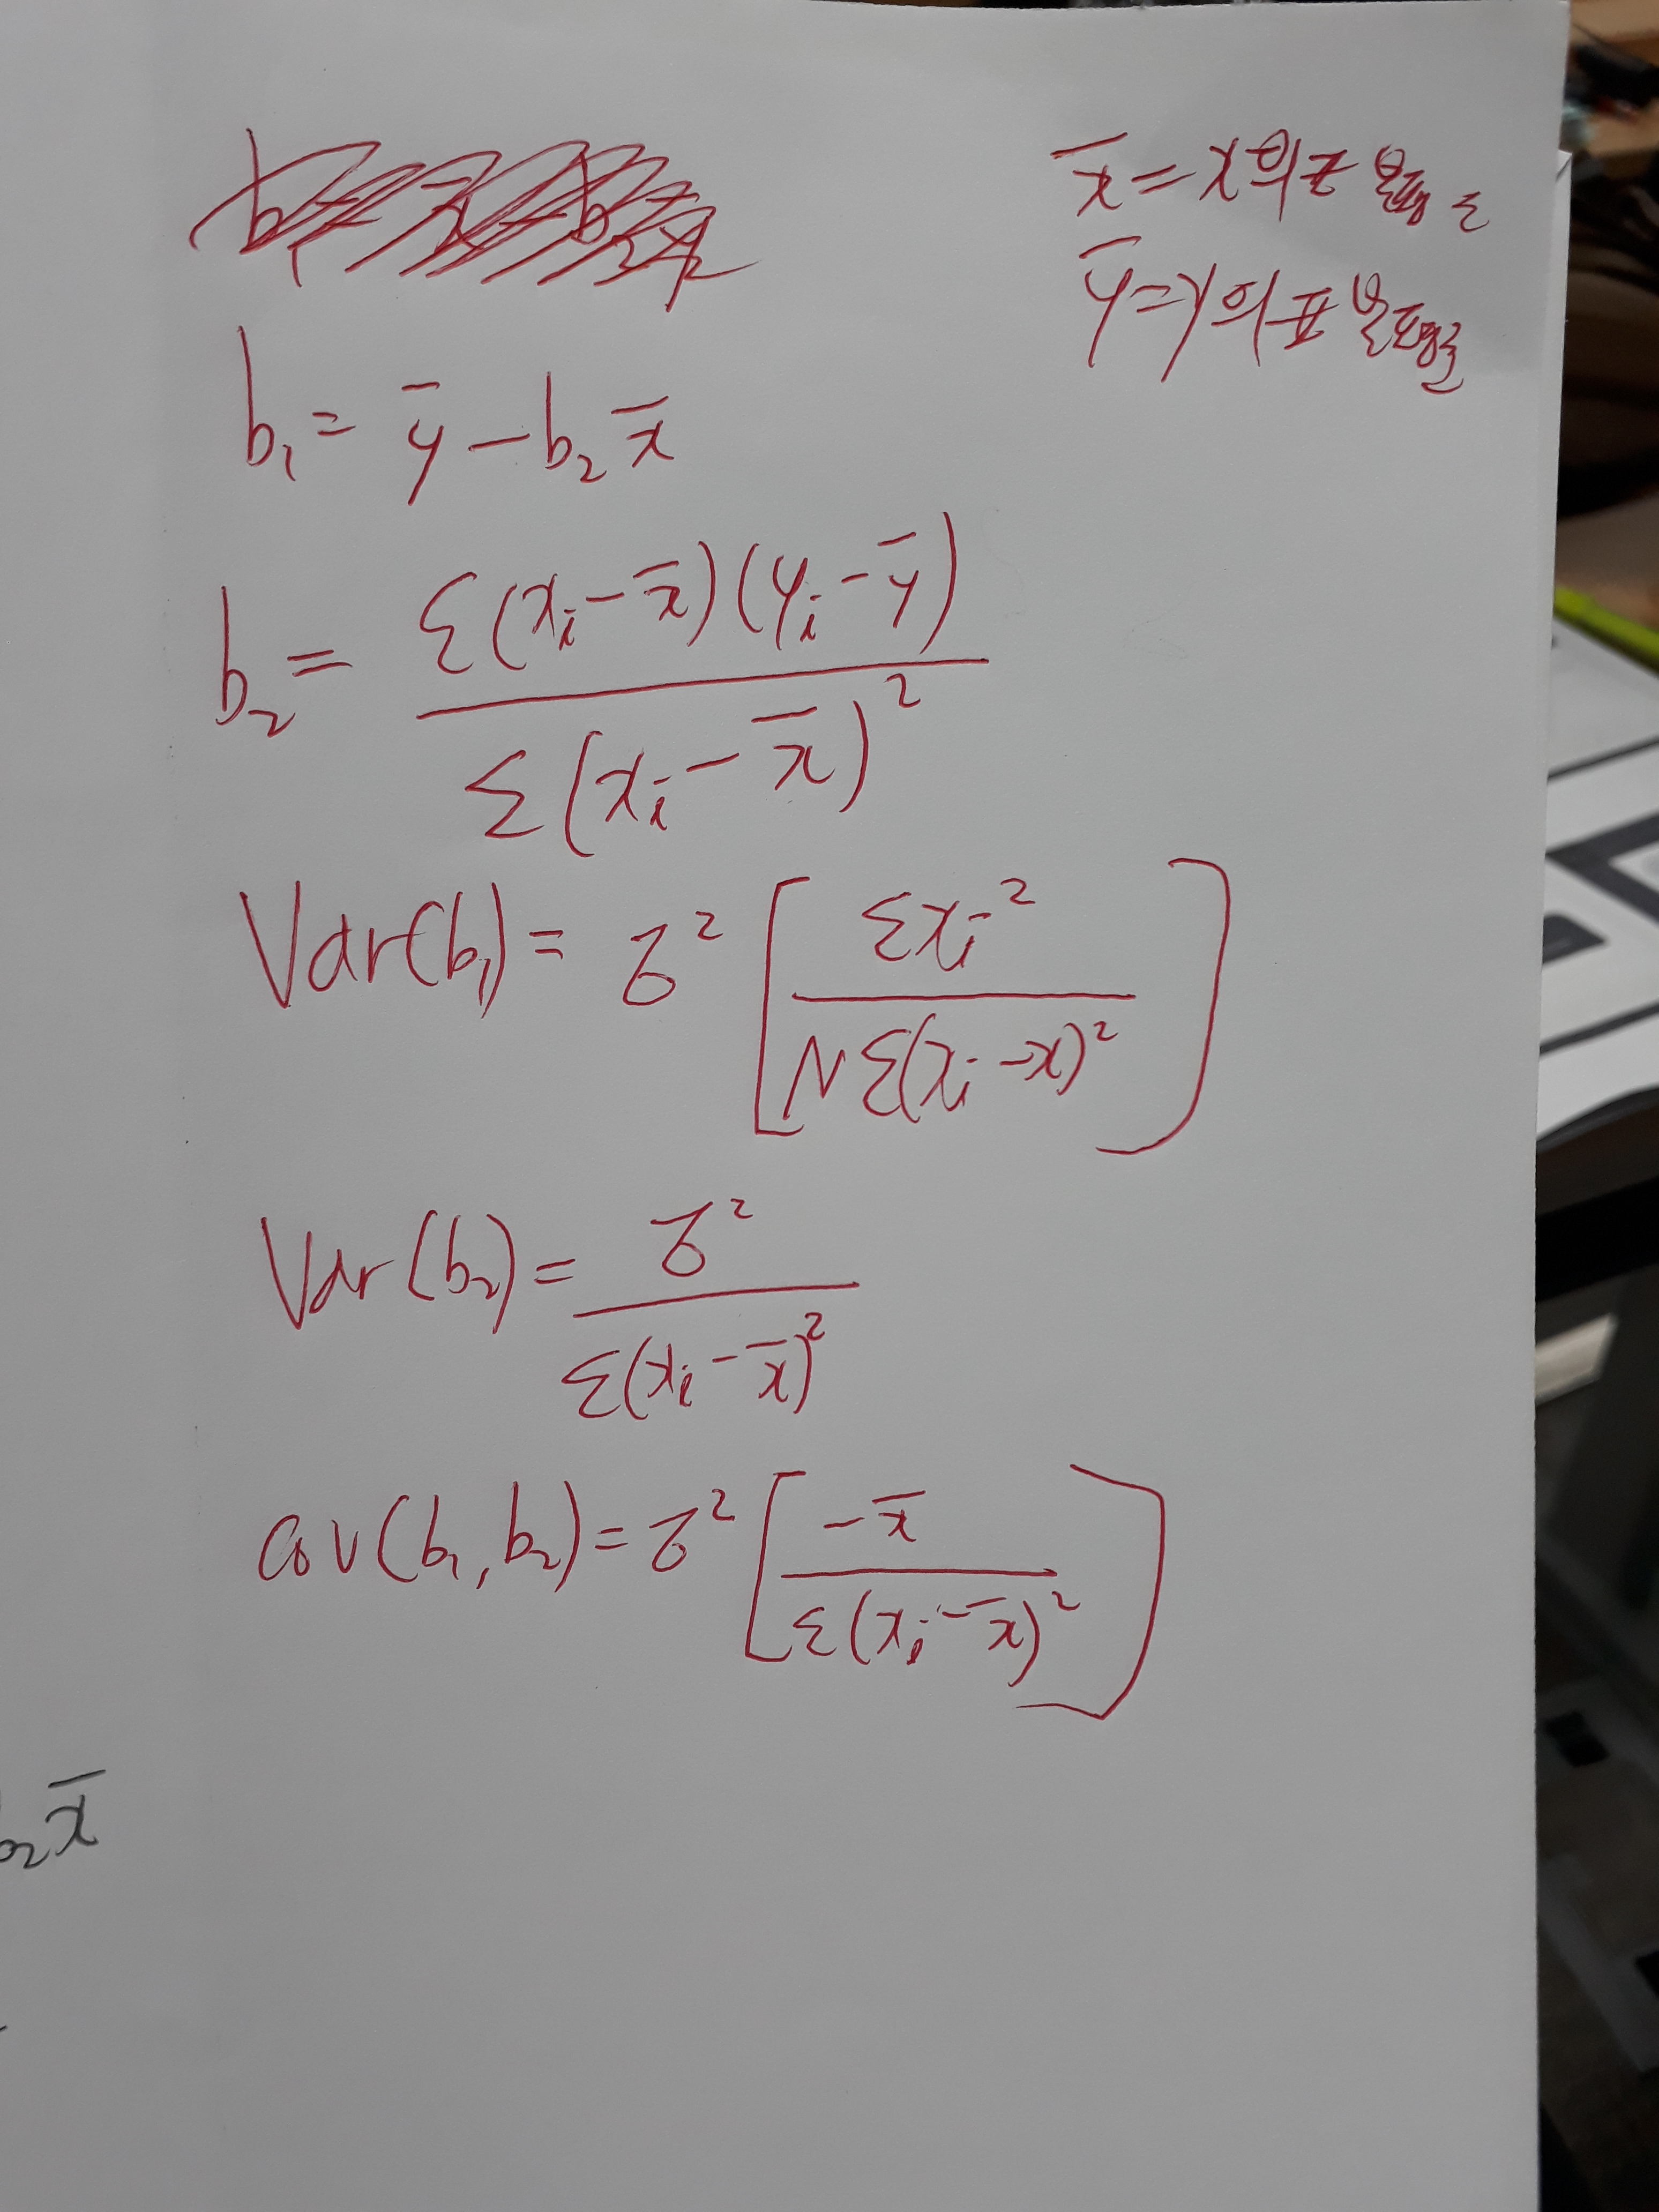 x̄ = x의 표본평균
ȳ = y의 표본평균
b₁ = ȳ - b₂x̄
b₂ = Σ(xᵢ - x̄)(yᵢ - ȳ) / Σ(xᵢ - x̄)²
Var(b₁) = σ² [Σxᵢ² / NΣ(xᵢ - x)²]
Var(b₂) = σ² / Σ(xᵢ - x̄)²
cov(b₁, b₂) = σ² [-x̄ / Σ(xᵢ - x̄)²]
b₂x̄